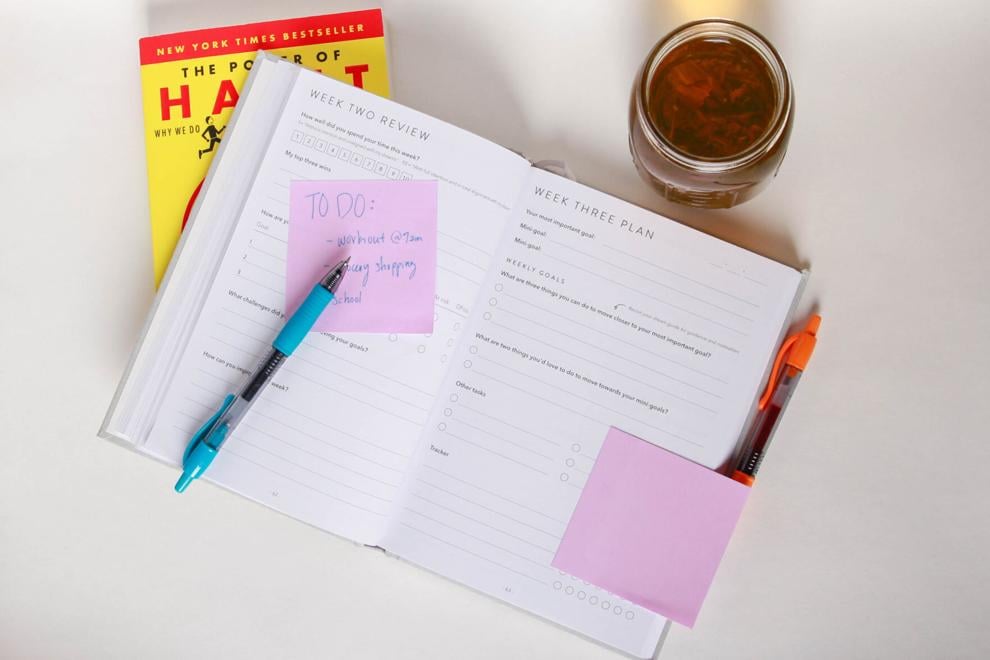 NEW YORK TIMES BESTSELLER
THE OF
WHY WE DO
WEEK TWO REVIEW
How well did you spend your time this week?
1 2 3 4 5 6 7 8 9 10
My top three wins
TO DO:
- workout @7am
- shopping
school
How are
Goal
1
2
3
At risk
What challenges did
your goals?
How can you
week?
62
WEEK THREE PLAN
Your most important goal:
Mini goal:
Mini goal:
WEEKLY GOALS
Record your dream guide for guidance and motivation
What are three things you can do to move closer to your most important goal?
What are two things you'd love to do to move towards your mini goals?
Other tasks
Tracker
63